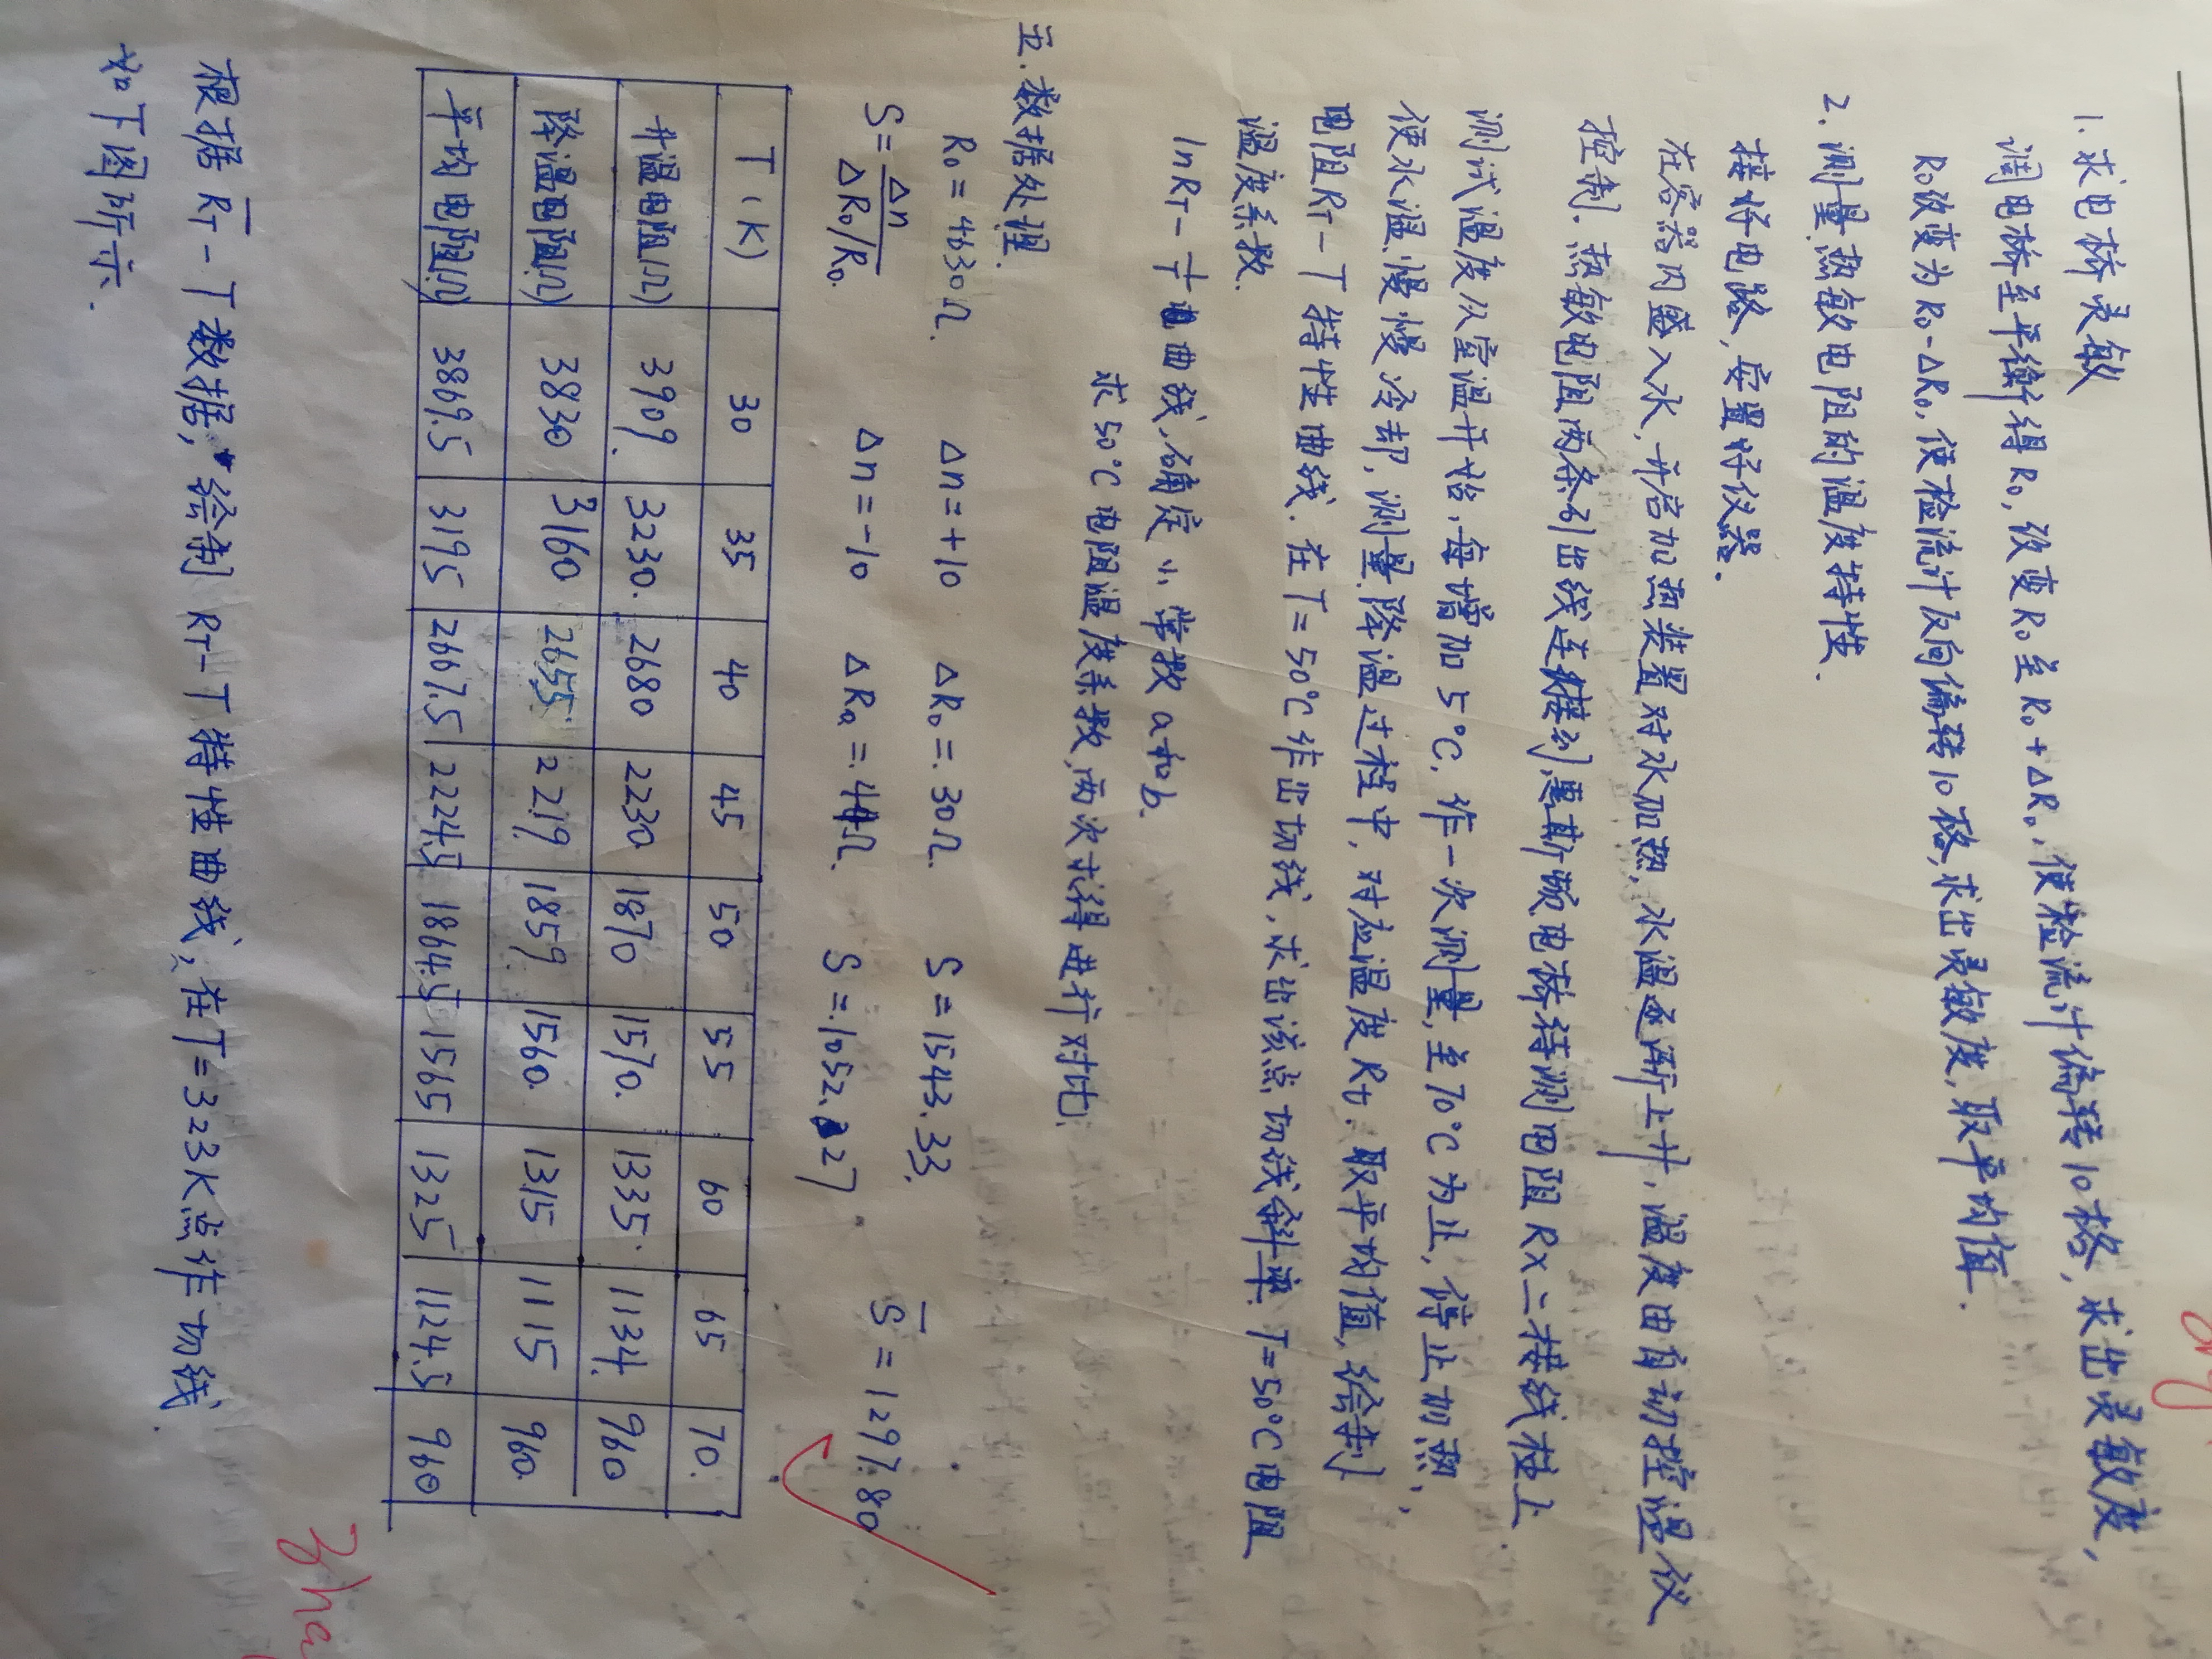 1. 求电桥灵敏
调电桥至平衡得R₀, 改变R₀至R₀+ΔR₀, 使检流计偏转10格, 求出灵敏度,
R₀改变为R₀-ΔR₀, 使检流计反向偏转10格, 求出灵敏度, 取平均值.
2. 测量热敏电阻的温度特性.
接好电路, 安置好仪器.
在容器内盛入水, 开启加热装置对水加热, 水温逐渐上升, 温度由自动控温仪
控制. 热敏电阻两条引出线连接到惠斯顿电桥待测电阻Rx二接线柱上.
测试温度从室温开始, 每增加5°C, 作一次测量, 至70°C为止, 停止加热,
使水温慢慢冷却, 测量降温过程中, 对应温度Rt. 取平均值, 绘制
电阻RT-T特性曲线. 在T=50°C作出切线, 求出该点切线斜率. T=50°C电阻
温度系数.
lnRT-1/T曲线, 确定小常数a和b.
求50°C电阻温度系数, 两次求得进行对比.
五. 数据处理.
R₀=4630Ω. Δn=+10 ΔR₀=30Ω. S=1543.33.
S=Δn/(ΔR₀/R₀). Δn=-10 ΔR₀=44Ω. S=1052.27 S̄=1297.80
T(K) 30 35 40 45 50 55 60 65 70.
升温电阻(Ω) 3909. 3230. 2680 2230 1870 1570. 1335 1134. 960
降温电阻(Ω) 3830 3160 2655 2219. 1859 1560. 1315 1115 960.
平均电阻(Ω) 3869.5 3195 2667.5 2224.5 1864.5 1565 1325 1124.5 960
根据R̄T-T数据, 绘制RT-T特性曲线, 在T=323K点作切线.
如下图所示.